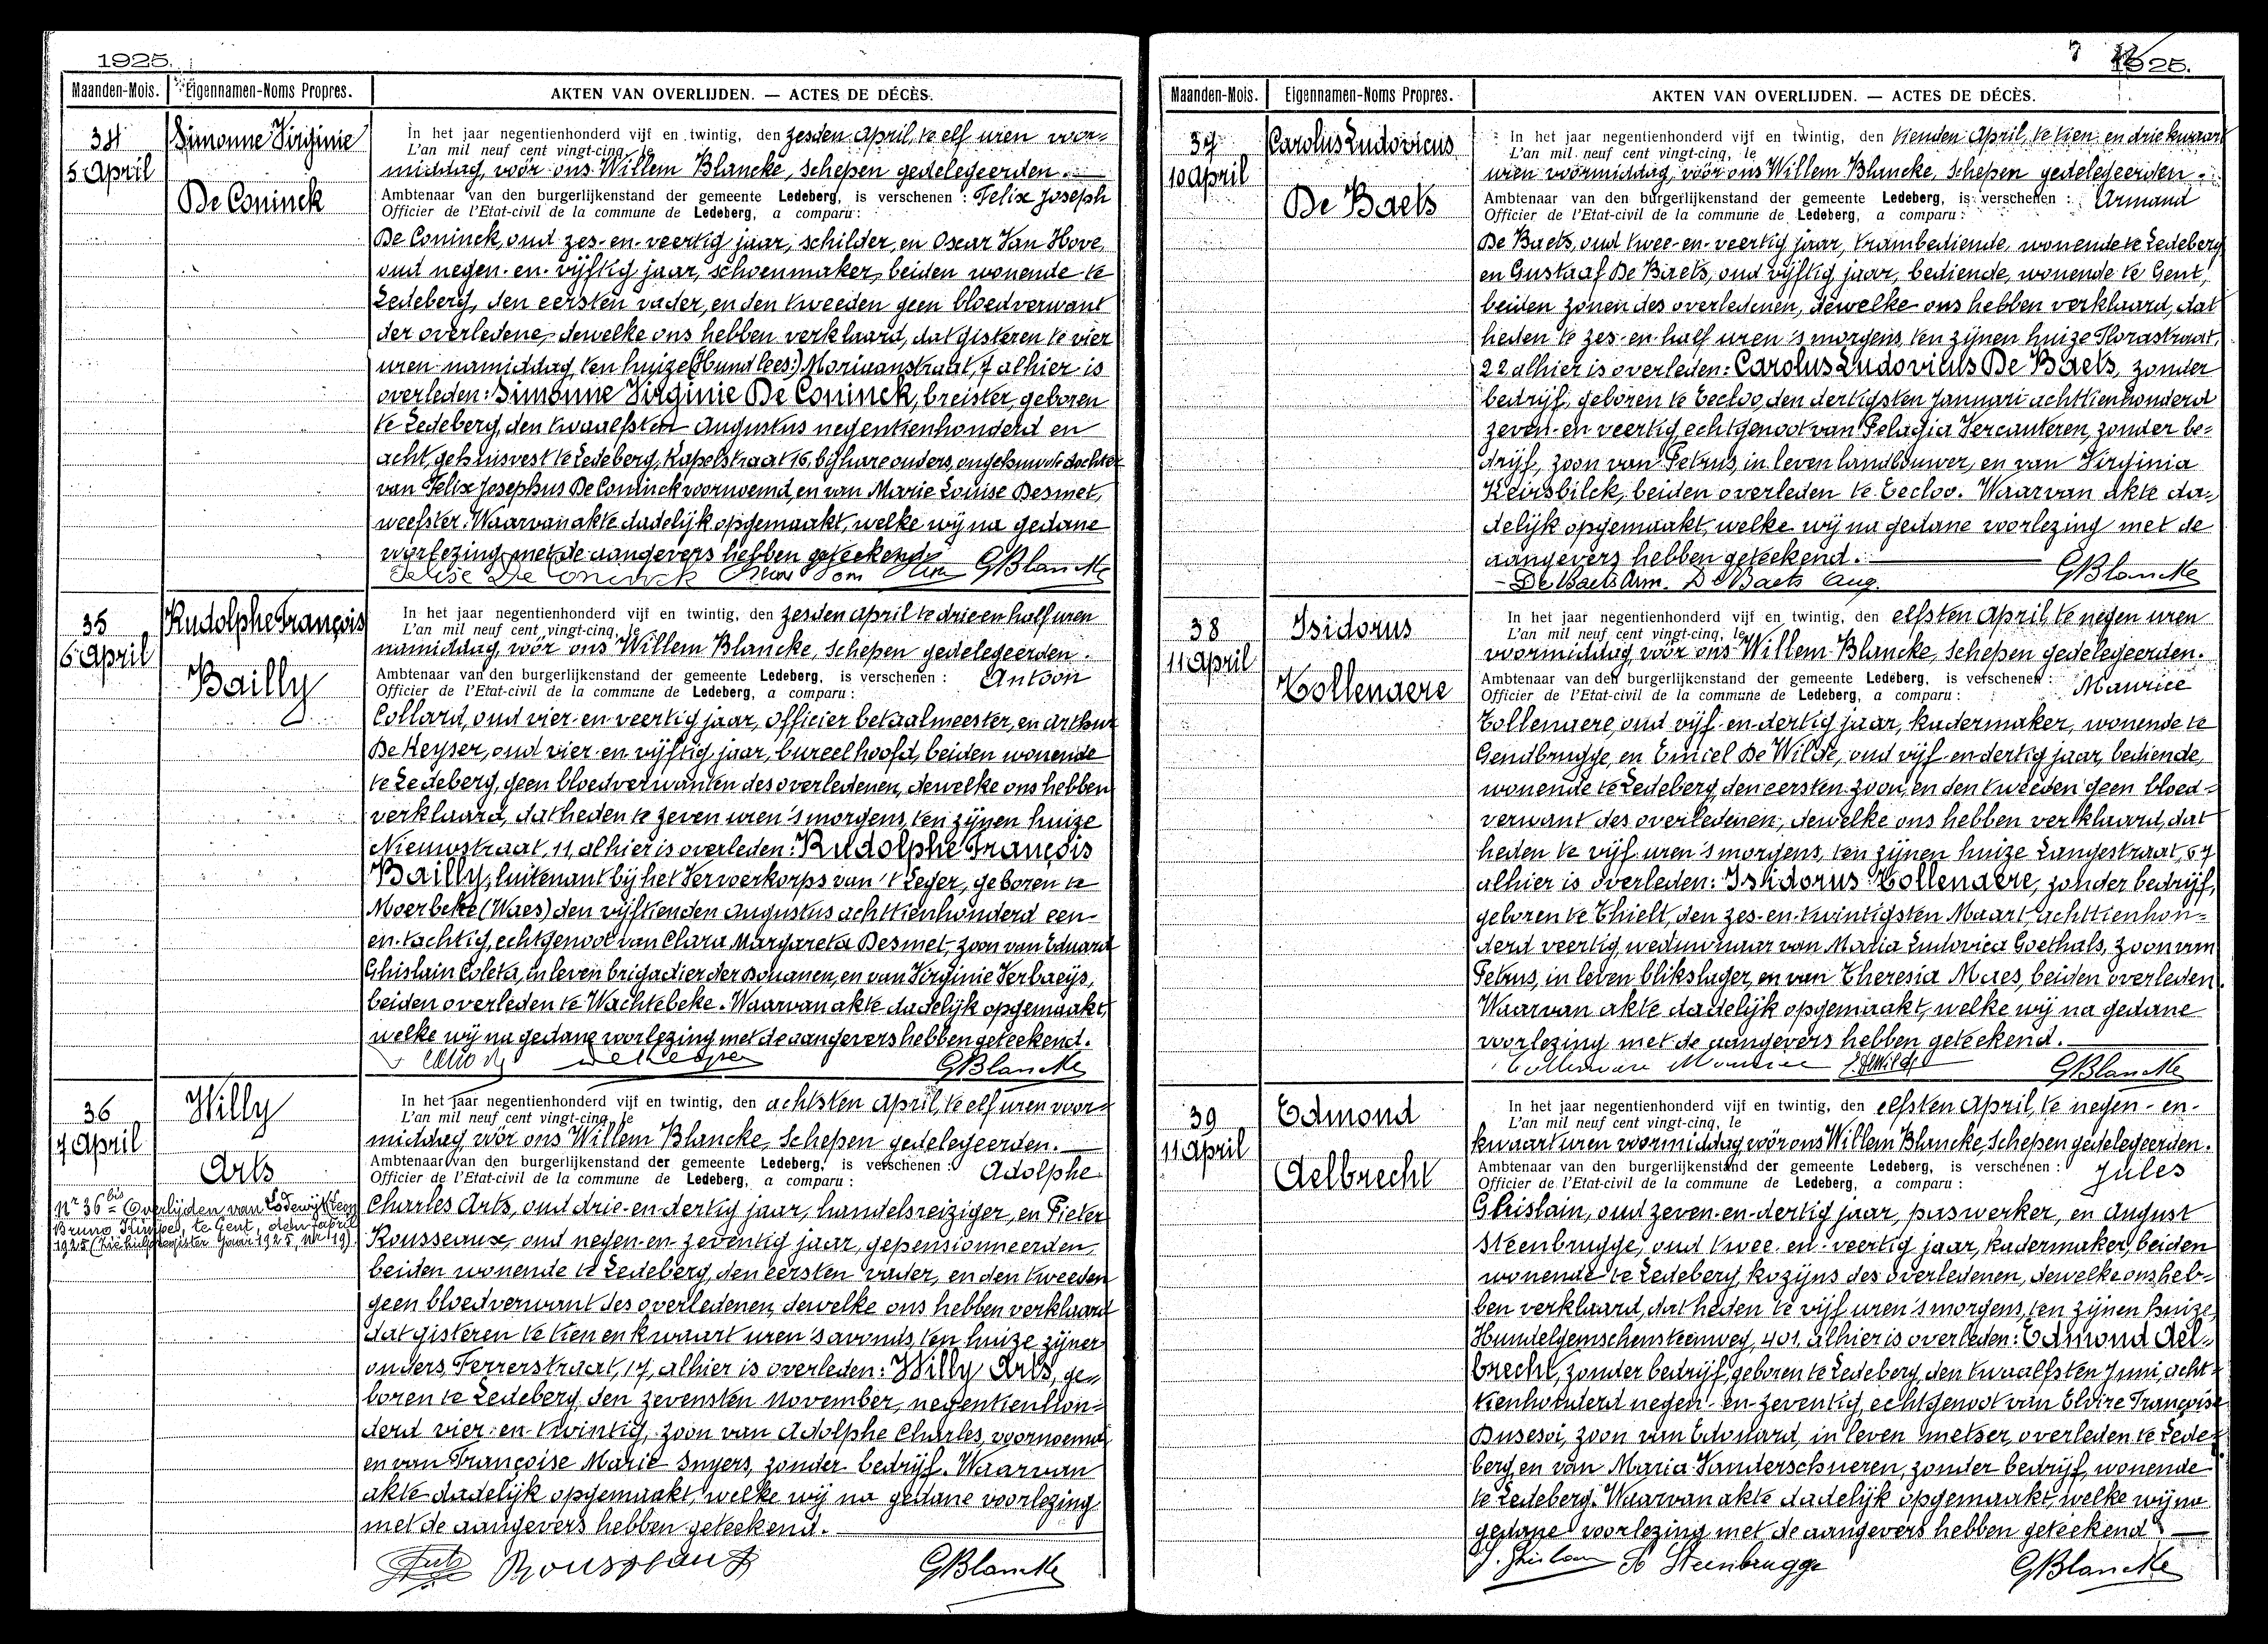 1925.
Maanden-Mois. Eigennamen-Noms Propres. AKTEN VAN OVERLIJDEN. — ACTES DE DÉCÈS.
34
5 April
Simonne Virginie
De Coninck
In het jaar negentienhonderd vijf en twintig, den zesden April, te elf uren voor=
L'an mil neuf cent vingt-cinq, le
middag, voor ons Willem Blancke, Schepen gedelegeerden.
Ambtenaar van den burgerlijkenstand der gemeente Ledeberg, is verschenen : Felix Joseph
Officier de l'Etat-civil de la commune de Ledeberg, a comparu :
De Coninck, oud zes-en-veertig jaar, schilder, en Oscar Van Hove,
oud negen-en-vijftig jaar, schoenmaker, beiden wonende te
Ledeberg, den eersten vader, en den tweeden geen bloedverwant
der overledene, dewelke ons hebben verklaard, dat gisteren te vier
uren namiddag, ten huize (Hund lees:) Moriaanstraat, 7 alhier is
overleden: Simonne Virginie De Coninck, breister, geboren
te Ledeberg, den twaalfsten Augustus negentienhonderd en
acht, gehuisvest te Ledeberg, Kapelstraat 16, bij hare ouders, ongehuwde dochter
van Felix Josephus De Coninck voornoemd, en van Marie Louise Desmet,
weefster. Waarvan akte dadelijk opgemaakt, welke wij na gedane
voorlezing met de aangevers hebben geteekend.
Felix De Coninck Oscar Van Hove GBlancke
35
6 April
Rudolphe François
Bailly
In het jaar negentienhonderd vijf en twintig, den zesden April te drie en half uren
L'an mil neuf cent vingt-cinq, le
namiddag, voor ons Willem Blancke, Schepen gedelegeerden.
Ambtenaar van den burgerlijkenstand der gemeente Ledeberg, is verschenen : Antoon
Officier de l'Etat-civil de la commune de Ledeberg, a comparu :
Collard, oud vier-en-veertig jaar, officier betaalmeester, en Arthur
De Keyser, oud vier-en-vijftig jaar, bureelhoofd, beiden wonende
te Ledeberg, geen bloedverwanten des overledenen, dewelke ons hebben
verklaard, dat heden te zeven uren 's morgens, ten zijnen huize
Nieuwstraat, 11, alhier is overleden: Rudolphe François
Bailly, luitenant bij het Vervoerkorps van 't Leger, geboren te
Moerbeke (Waes) den vijftienden Augustus achttienhonderd een-
en-tachtig, echtgenoot van Clara Margareta Desmet, zoon van Eduard
Ghislain Coleta, in leven brigadier der Douanen, en van Virginie Verbaeys,
beiden overleden te Wachtebeke. Waarvan akte dadelijk opgemaakt,
welke wij na gedane voorlezing met de aangevers hebben geteekend.
De Keyser GBlancke
36
7 April
Willy
Arts
Nr 36 bis = Overlijden van Lodewijk Leon
Bruno te Gent, den April
1925 (Zie hulpregister Jaar 1925, nr 19).
In het jaar negentienhonderd vijf en twintig, den achtsten April, te elf uren voor=
L'an mil neuf cent vingt-cinq, le
middag voor ons Willem Blancke, Schepen gedelegeerden.
Ambtenaar van den burgerlijkenstand der gemeente Ledeberg, is verschenen : Adolphe
Officier de l'Etat-civil de la commune de Ledeberg, a comparu :
Charles Arts, oud drie-en-dertig jaar, handelsreiziger, en Pieter
Rousseaux, oud negen-en-zeventig jaar, gepensionneerden,
beiden wonende te Ledeberg, den eersten vader, en den tweeden
geen bloedverwant des overledenen, dewelke ons hebben verklaard
dat gisteren te tien en kwaart uren 's avonds, ten huize zijner
ouders, Ferrerstraat, 17, alhier is overleden: Willy Arts, ge=
boren te Ledeberg, den zevensten November, negentienhon=
derd vier-en-twintig, zoon van Adolphe Charles, voornoemd
en van Françoise Marie Snyers, zonder bedrijf. Waarvan
akte dadelijk opgemaakt, welke wij na gedane voorlezing
met de aangevers hebben geteekend.
Arts Rousseaux GBlancke
7
1925.
Maanden-Mois. Eigennamen-Noms Propres. AKTEN VAN OVERLIJDEN. — ACTES DE DÉCÈS.
37
10 April
Carolus Ludovicus
De Baets
In het jaar negentienhonderd vijf en twintig, den tienden April, te tien en drie kwaart
L'an mil neuf cent vingt-cinq, le
uren voormiddag, voor ons Willem Blancke, Schepen gedelegeerden.
Ambtenaar van den burgerlijkenstand der gemeente Ledeberg, is verschenen : Armand
Officier de l'Etat-civil de la commune de Ledeberg, a comparu :
De Baets, oud twee-en-veertig jaar, trambediende, wonende te Ledeberg
en Gustaaf De Baets, oud vijftig jaar, bediende, wonende te Gent,
beiden zonen des overledenen, dewelke ons hebben verklaard, dat
heden te zes-en-half uren 's morgens, ten zijnen huize Florastraat,
22 alhier is overleden: Carolus Ludovicus De Baets, zonder
bedrijf, geboren te Eecloo, den dertigsten Januari achttienhonderd
zeven-en veertig echtgenoot van Pelagia Vercauteren, zonder be=
drijf, zoon van Petrus, in leven landbouwer, en van Virginia
Keirsbilck, beiden overleden te Eecloo. Waarvan akte da=
delijk opgemaakt, welke wij na gedane voorlezing met de
aangevers hebben geteekend.
De Baets Arm. De Baets Aug. GBlancke
38
11 April
Isidorus
Tollenaere
In het jaar negentienhonderd vijf en twintig, den elfsten April, te negen uren
L'an mil neuf cent vingt-cinq, le
voormiddag, voor ons Willem Blancke, Schepen gedelegeerden.
Ambtenaar van den burgerlijkenstand der gemeente Ledeberg, is verschenen : Maurice
Officier de l'Etat-civil de la commune de Ledeberg, a comparu :
Tollenaere, oud vijf-en-dertig jaar, kadermaker, wonende te
Gendbrugge, en Emiel De Wilde, oud vijf-en-dertig jaar, bediende,
wonende te Ledeberg, den eersten zoon, en den tweeden geen bloed=
verwant des overledenen, dewelke ons hebben verklaard, dat
heden te vijf uren 's morgens, ten zijnen huize Langestraat, 67
alhier is overleden: Isidorus Tollenaere, zonder bedrijf,
geboren te Thielt, den zes-en-twintigsten Maart achttienhon=
derd veertig weduwnaar van Maria Ludovica Goethals, zoon van
Petrus, in leven blikslager, en van Theresia Maes, beiden overleden.
Waarvan akte dadelijk opgemaakt, welke wij na gedane
voorlezing met de aangevers hebben geteekend.
Tollenaere Maurice E. DeWilde GBlancke
39
11 April
Edmond
Aelbrecht
In het jaar negentienhonderd vijf en twintig, den elfsten April, te negen-en-
L'an mil neuf cent vingt-cinq, le
kwaart uren voormiddag voor ons Willem Blancke, Schepen gedelegeerden.
Ambtenaar van den burgerlijkenstand der gemeente Ledeberg, is verschenen : Jules
Officier de l'Etat-civil de la commune de Ledeberg, a comparu :
Ghislain, oud zeven-en-dertig jaar, paswerker, en August
Steenbrugge, oud twee-en-veertig jaar, kadermaker, beiden
wonende te Ledeberg, kozijns des overledenen, dewelke ons heb=
ben verklaard, dat heden te vijf uren 's morgens, ten zijnen huize,
Hundelgemschensteenweg, 401, alhier is overleden: Edmond Ael=
brecht, zonder bedrijf, geboren te Ledeberg, den twaalfsten Juni, acht=
tienhonderd negen-en-zeventig, echtgenoot van Elvire Françoise
Dusesoi, zoon van Edouard, in leven metser, overleden te Lede=
berg, en van Maria Vanderschueren, zonder bedrijf, wonende
te Ledeberg. Waarvan akte dadelijk opgemaakt, welke wij na
gedane voorlezing met de aangevers hebben geteekend.
J. Ghislain A Steenbrugge GBlancke